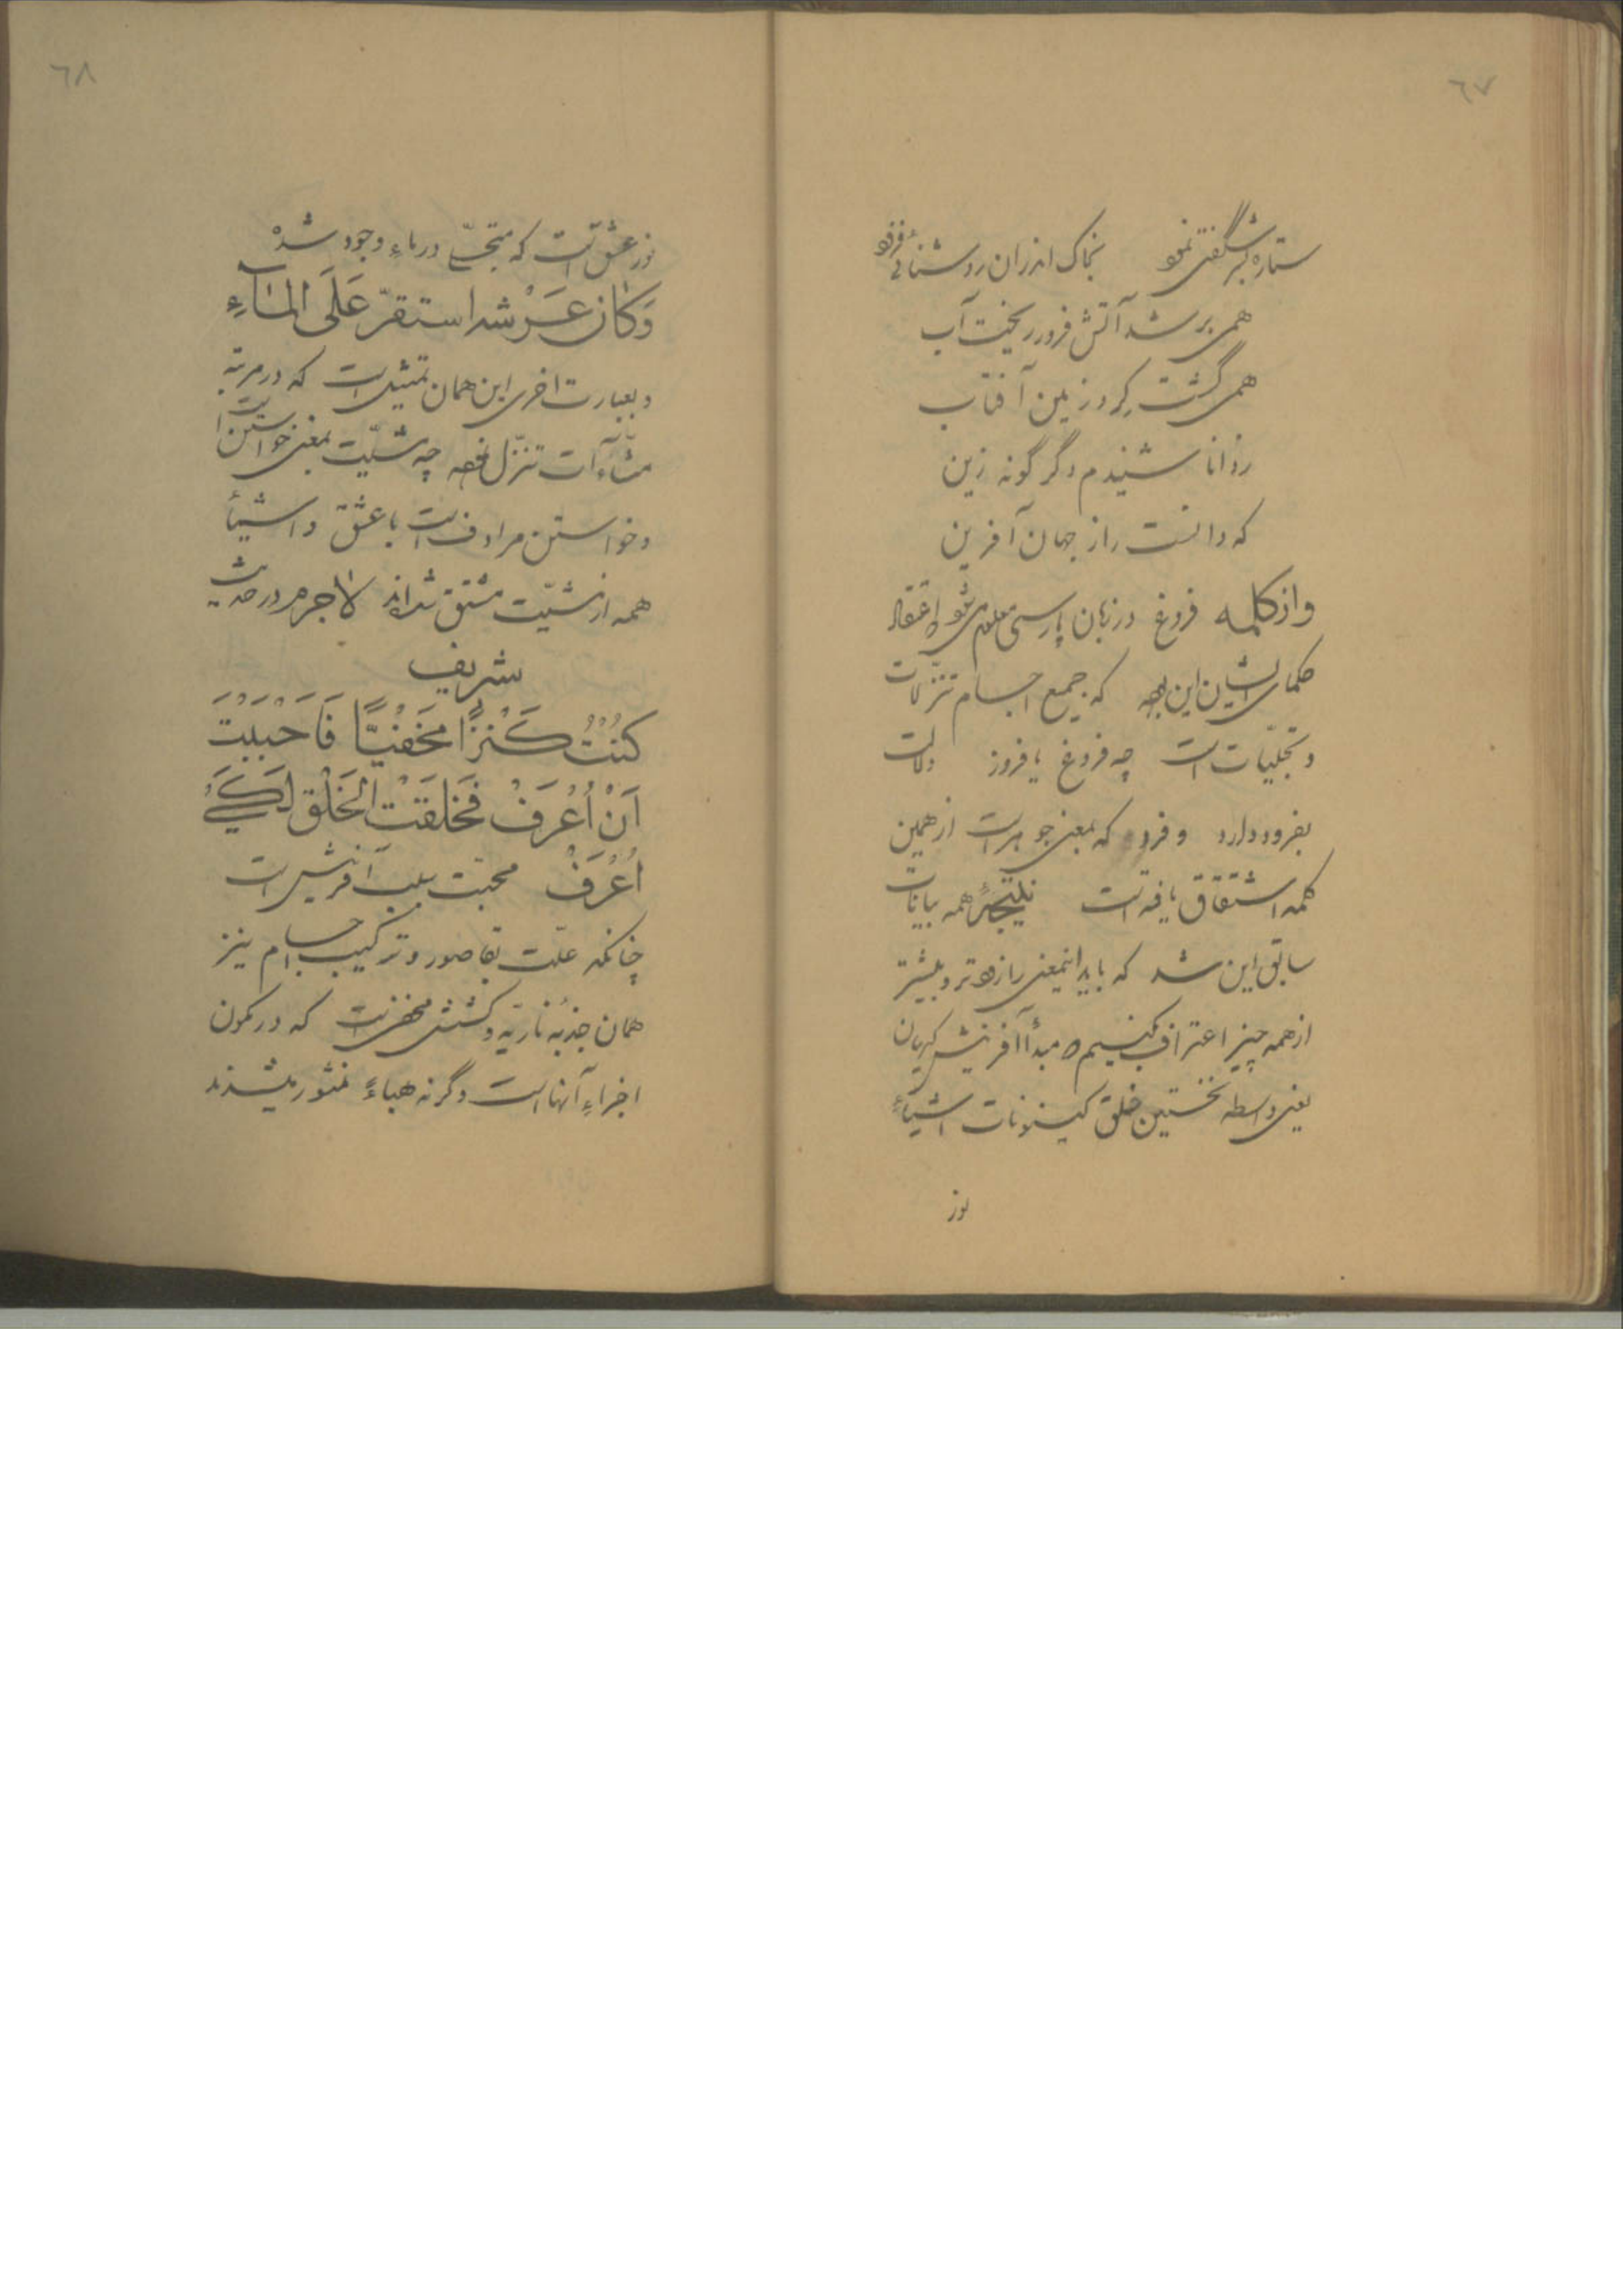 ٦٧
ستاره بسر شگفتی نمود بخاک اندران روشنائی فزود
همی بر شد آتش فرو ریخت آب
همی گشت گرد زمین آفتاب
ز دانا شنیدم دگر گونه زین
که دانست راز جهان آفرین
و از کلمه فروغ در زبان پارسی معلوم میشود اعتقاد
حکمای پیشین این بوده که جمیع اجسام تنزلات
و تجلیات است چه فروغ یا فروز دلالت
بفرود دارد و فرود که بمعنی جو هراست از همین
کلمه اشتقاق یافته است نتیجهٔ همه بیانات
سابق این شد که باید اینمعنی را زودتر و بیشتر
از همه چیز اعتراف کنیم که مبدأ آفرینش کریان
یعنی واسطه نخستین خلق کینونات اشیآء
نور
٦٨
نور عشق است که متجلی در ماء وجود شده
وَكانَ عَرْشه استقرّ عَلَى المآءِ
و بعبارت اخری این همان مشیت است که در مرتبه
منشآت تنزل نموده چه مشیّت بمعنی خواستن است
و خواستن مرادف است با عشق و اشیآء
همه از مشیّت مشتق شده‌اند لاجرم در حدیث
شریف
كُنْتُ كَنْزًا مَخْفيًّا فَاَحْبَبْتُ
اَنْ اُعْرَفْ فَخَلَقْتُ الخَلْقَ لِكَيْ
اُعْرَفْ محبّت سبب آفرینش است
چنانکه علّت بقا صور و ترکیب اجسام نیز
همان جذبهٔ ناریّه و کشش مخفی است که در کمون
اجزاءِ آنها است وگرنه هباءً منثور میشدند